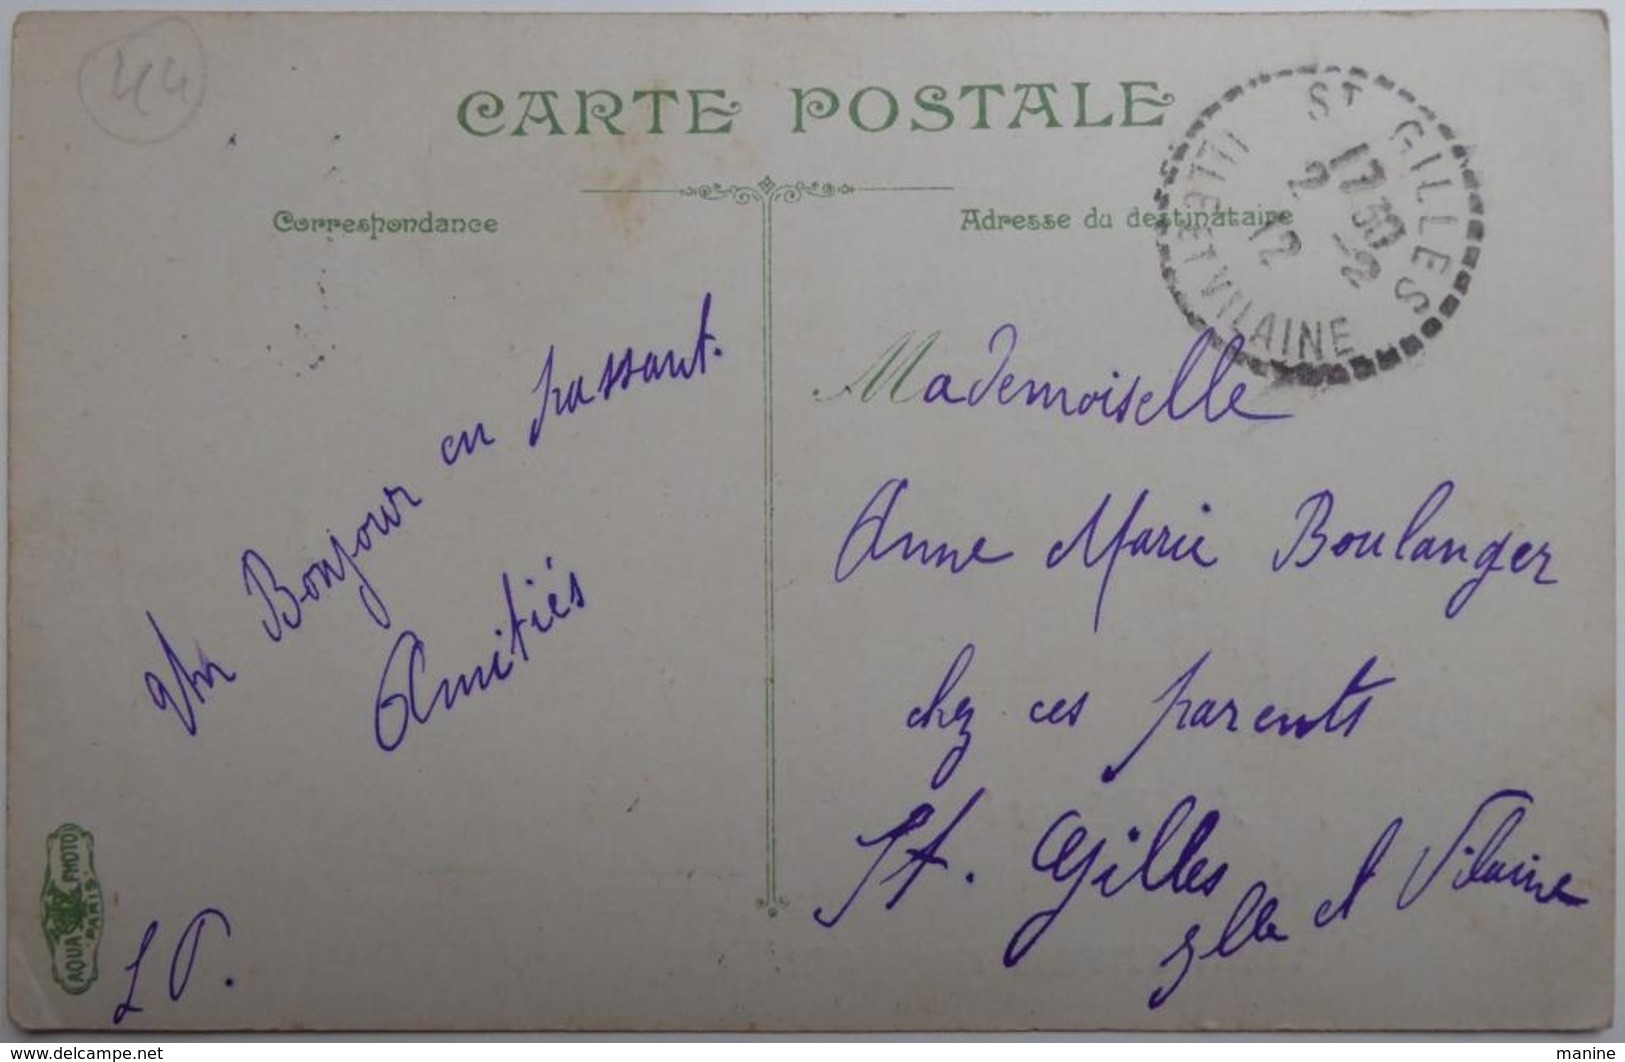 44
CARTE POSTALE
Correspondance
Adresse du destinataire
ST GILLES
17 30
2 -2
12
ILLE ET VILAINE
Un Bonjour en passant.
Amitiés
Mademoiselle
Anne Marie Boulanger
chez ces parents
St. Gilles
Ille et Vilaine
AQUA PHOTO
PARIS
L P.
delcampe.net
manine